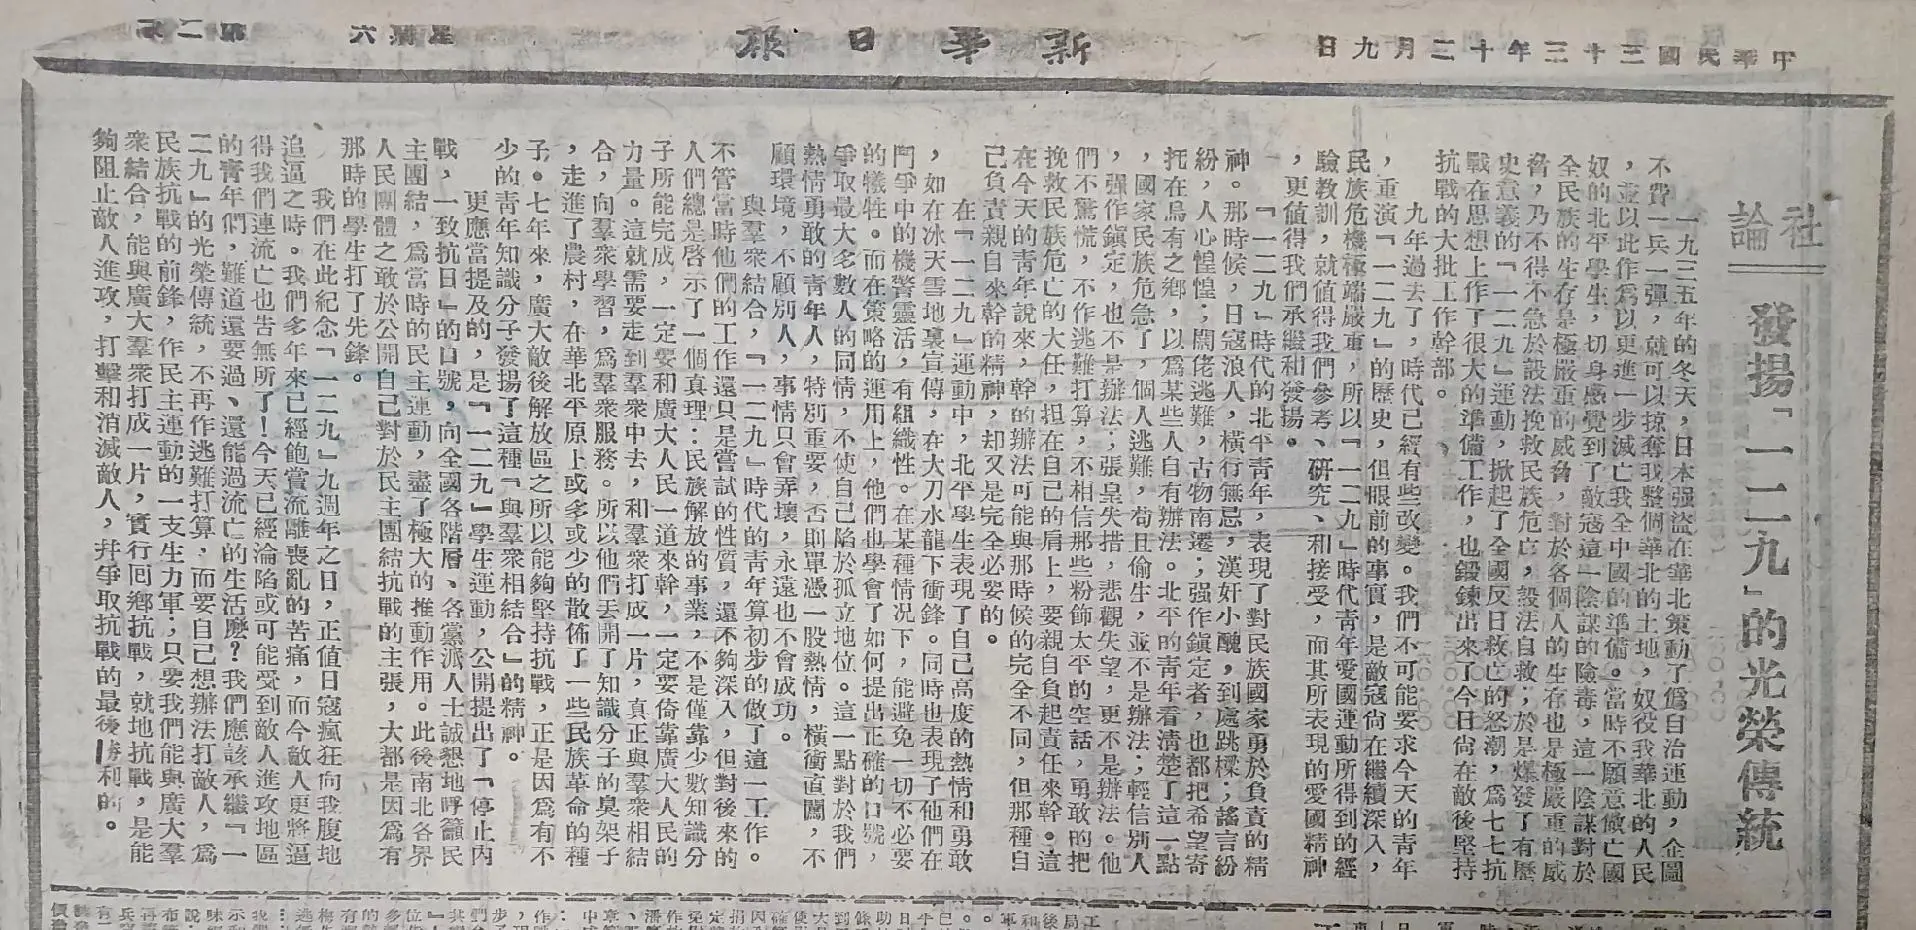 中華民國三十三年十二月九日
新華日報
星期六
第二版
社論
發揚「一二九」的光榮傳統
一九三五年的冬天，日本强盜在華北策動了僞自治運動，企圖
不費一兵一彈，就可以掠奪我整個華北的土地，奴役我華北的人民
，並以此作爲以更進一步滅亡我全中國的準備。當時不願意做亡國
奴的北平學生，切身感覺到了敵寇這一陰謀的險毒，這一陰謀對於
全民族的生存是極嚴重的威脅，對於各個人的生存也是極嚴重的威
脅，乃不得不急於設法挽救民族危亡，設法自救；於是爆發了有歷
史意義的「一二九」運動，掀起了全國反日救亡的怒潮，爲七七抗
戰在思想上作了很大的準備工作，也鍛鍊出來了今日尙在敵後堅持
抗戰的大批工作幹部。
九年過去了，時代已經有些改變。我們不可能要求今天的青年
，重演「一二九」的歷史，但眼前的事實，是敵寇尙在繼續深入，
民族危機極端嚴重，所以「一二九」時代青年愛國運動所得到的經
驗教訓，就值得我們參考、研究、和接受，而其所表現的愛國精神
，更值得我們承繼和發揚。
「一二九」時代的北平青年，表現了對民族國家勇於負責的精
神。那時候，日寇浪人，橫行無忌，漢奸小醜，到處跳樑；謠言紛
紛，人心惶惶；闊佬逃難，古物南遷；强作鎭定者，也都把希望寄
托在烏有之鄉，以爲某些人自有辦法。北平的青年看清楚了這一點
，國家民族危急了，個人逃難，苟且偷生，並不是辦法；輕信別人
，强作鎭定，也不是辦法；張皇失措，悲觀失望，更不是辦法。他
們不驚慌，不作逃難打算，不相信那些粉飾太平的空話，勇敢的把
挽救民族危亡的大任，担在自己的肩上，要親自負起責任來幹。這
在今天的青年說來，幹的辦法可能與那時候的完全不同，但那種自
己負責親自來幹的精神，却又是完全必要的。
在「一二九」運動中，北平學生表現了自己高度的熱情和勇敢
，如在冰天雪地裏宣傳，在大刀水龍下衝鋒。同時也表現了他們在
鬥爭中的機警靈活，有組織性。在某種情况下，能避免一切不必要
的犧牲。而在策略的運用上，他們也學會了如何提出正確的口號，
爭取最大多數人的同情，不使自己陷於孤立地位。這一點對於我們
熱情勇敢的青年人，特別重要，否則單憑一股熱情，橫衝直闖，不
顧環境，不顧別人，事情只會弄壞，永遠也不會成功。
與羣衆結合，「一二九」時代的青年算初步的做了這一工作。
不管當時他們的工作還只是嘗試的性質，還不夠深入，但對後來的
人們總是啓示了一個真理：民族解放的事業，不是僅靠少數知識分
子所能完成，一定要和廣大人民一道來幹，一定要倚靠廣大人民的
力量。這就需要走到羣衆中去，和羣衆打成一片，真正與羣衆相結
合，向羣衆學習，爲羣衆服務。所以他們丟開了知識分子的臭架子
，走進了農村，在華北平原上或多或少的散佈了一些民族革命的種
子。七年來，廣大敵後解放區之所以能夠堅持抗戰，正是因爲有不
少的青年知識分子發揚了這種「與羣衆相結合」的精神。
更應當提及的，是「一二九」學生運動，公開提出了「停止內
戰，一致抗日」的口號，向全國各階層、各黨派人士誠懇地呼籲民
主團結，爲當時的民主運動，盡了極大的推動作用。此後南北各界
人民團體之敢於公開自己對於民主團結抗戰的主張，大都是因爲有
那時的學生打了先鋒。
我們在此紀念「一二九」九週年之日，正值日寇瘋狂向我腹地
追逼之時。我們多年來已經飽嘗流離喪亂的苦痛，而今敵人更將逼
得我們連流亡也告無所了！今天已經淪陷或可能受到敵人進攻地區
的青年們，難道還要過、還能過流亡的生活麼？我們應該承繼『一
二九』的光榮傳統，不再作逃難打算，而要自己想辦法打敵人，爲
民族抗戰的前鋒，作民主運動的一支生力軍；只要我們能與廣大羣
衆結合，能與廣大羣衆打成一片，實行囘鄉抗戰，就地抗戰，是能
夠阻止敵人進攻，打擊和消滅敵人，幷爭取抗戰的最後勝利的。